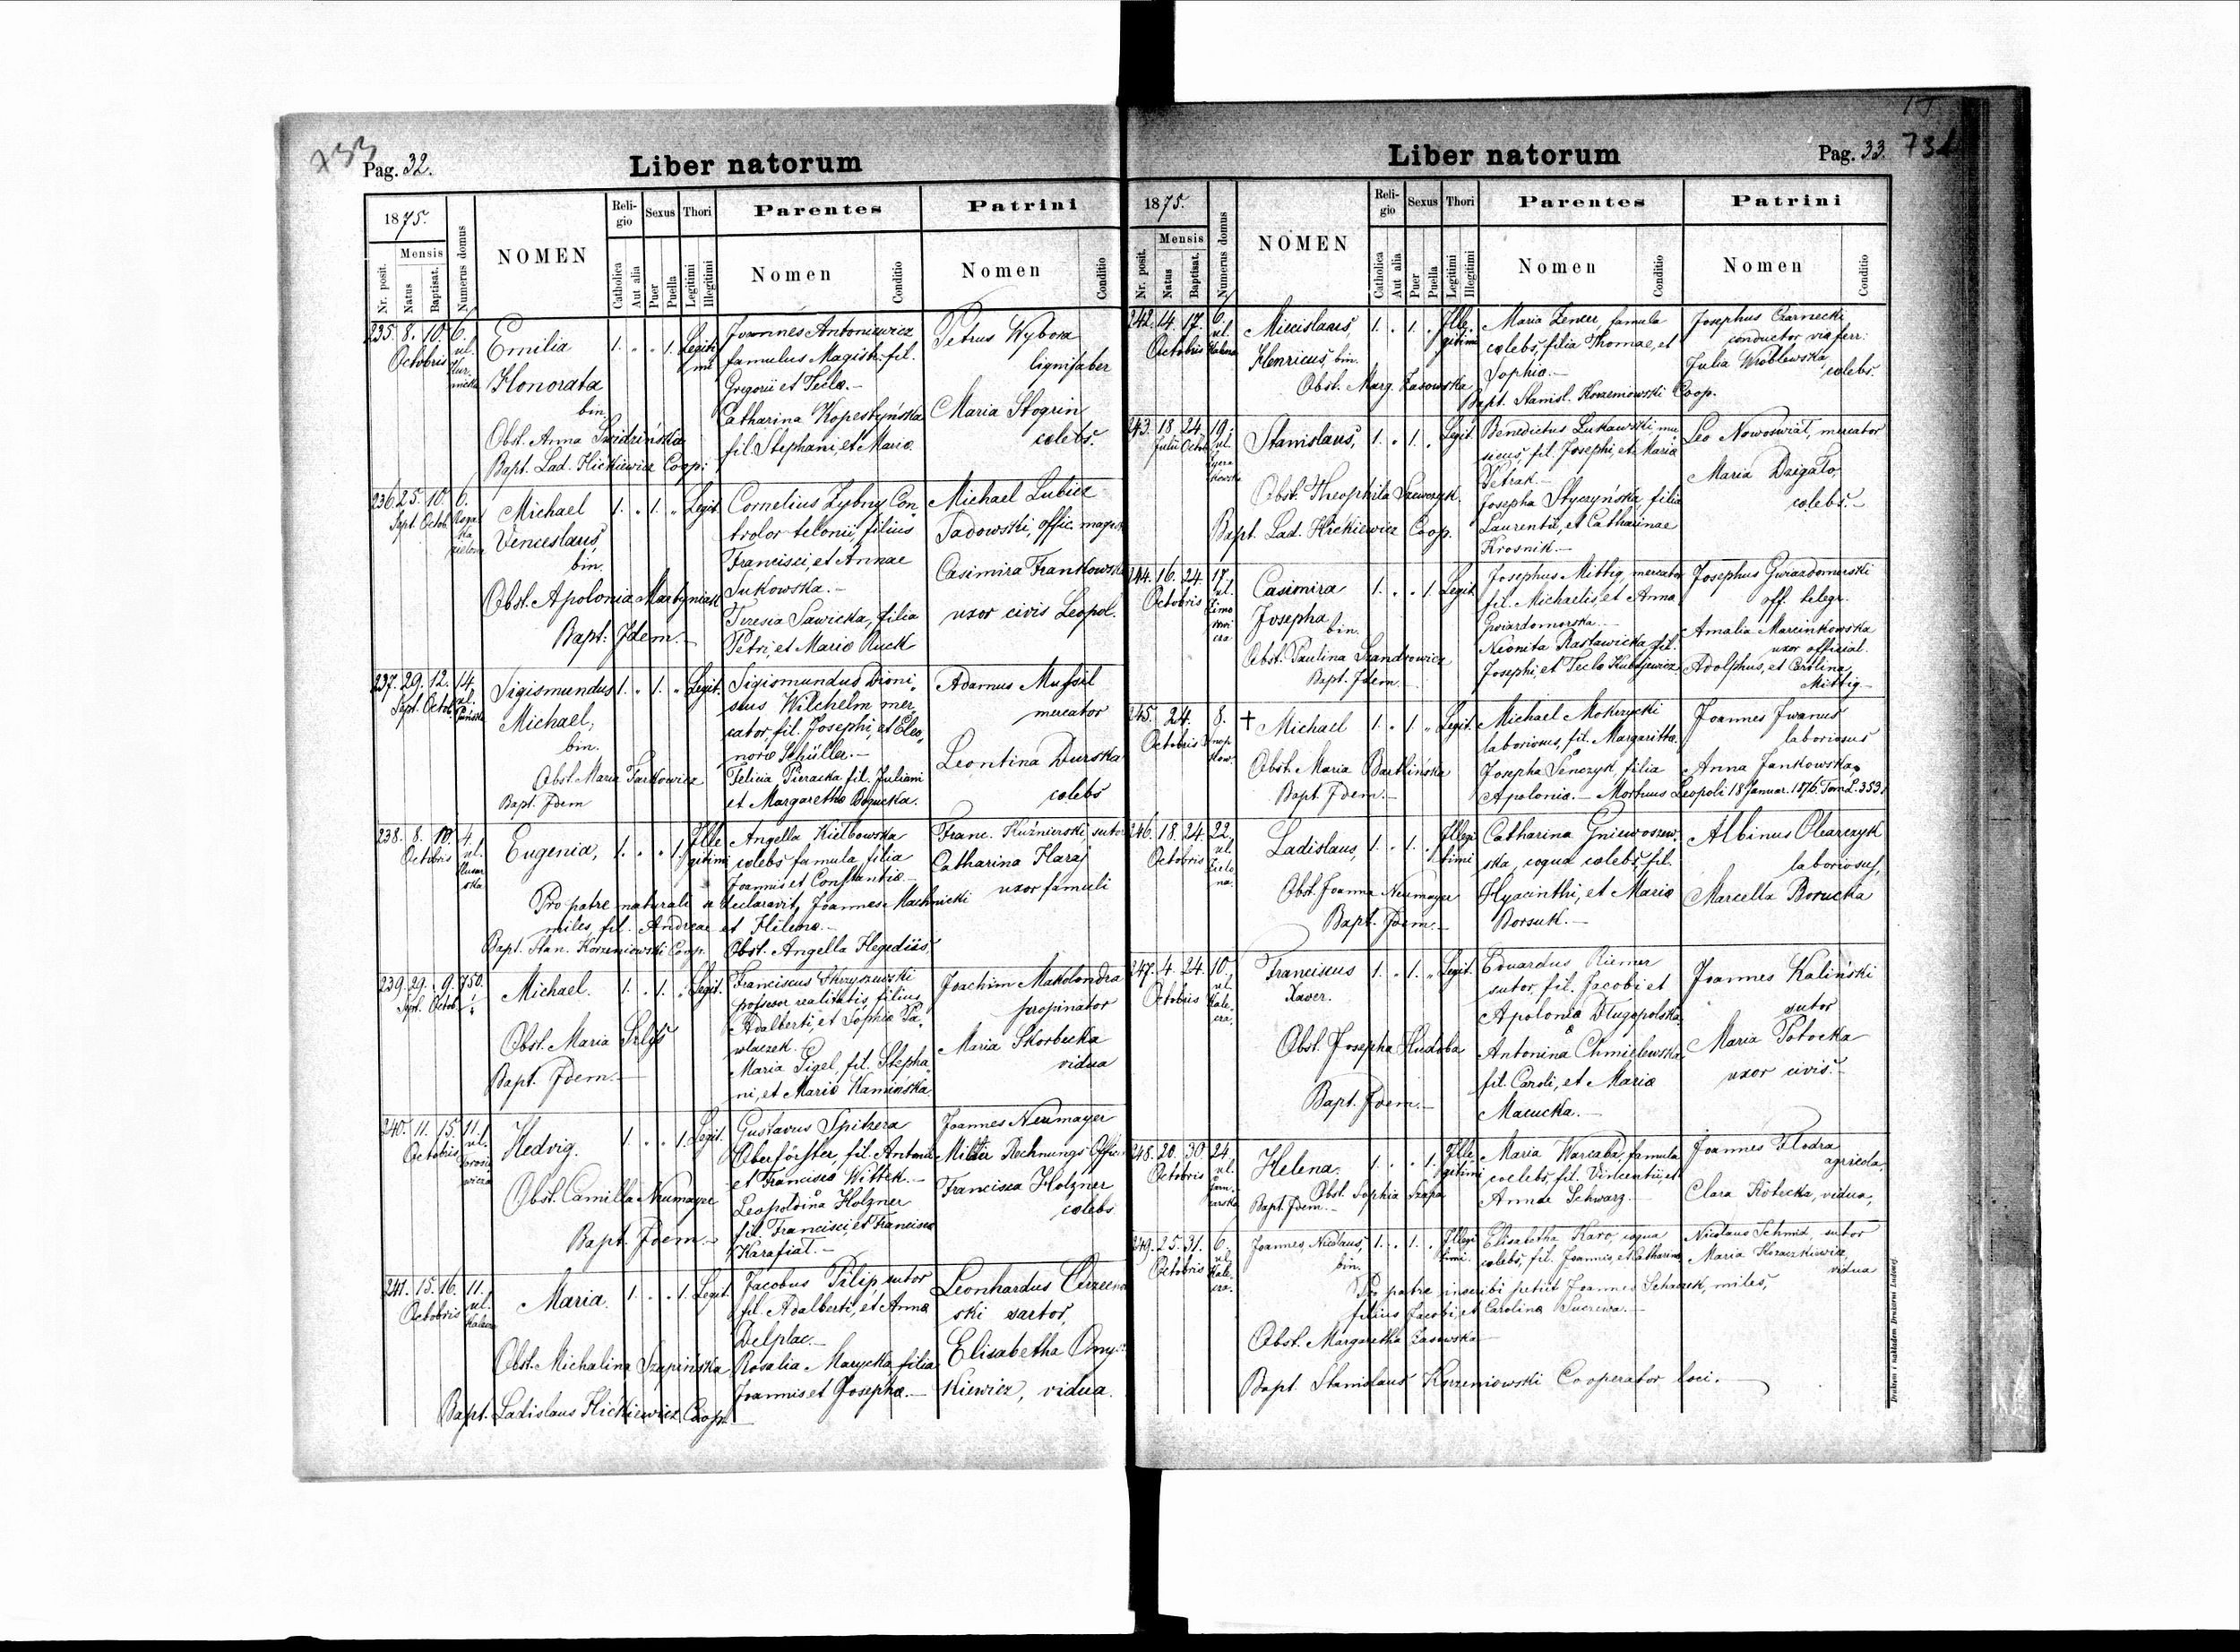 733
Pag. 32.
Liber natorum
1875.
Mensis
Nr. posit.
Natus
Baptisat.
Numerus domus
NOMEN
Religio
Catholica
Aut alia
Sexus
Puer
Puella
Thori
Legitimi
Illegitimi
Parentes
Nomen
Conditio
Patrini
Nomen
Conditio
235. 8. 10. 6.
Octobris ul.
Emilia
Honorata
bin.
1. 1. Legitimi
Joannes Antoniewicz
famulus Magistr. fil.
Gregorii et Teclae.—
Catharina Kopestyńska
fil. Stephani, et Mariae.
Petrus Wybora
lignifaber
Maria Stogrin
caelebs.
Obst. Anna
Bapt. Lad. Hickiewicz Coop:
236. 25. 10. 6.
Sept. Octob.
Michael
Venceslaus,
bin.
1. 1. Legit.
Cornelius Zybny Con-
trolor telonii, filius
Francisci, et Annae
Sukowska.—
Teresia Sawicka, filia
Petri, et Mariae Ruck
Michael Lubicz
Sadowski, offic. magis.
Casimira Frankowska
uxor civis Leopol.
Obst. Apolonia Martyniak
Bapt. Idem.—
237. 29. 12. 14.
Sept. Octob. ul.
Sigismundus
Michael,
bin.
1. 1. Legit.
Sigismundus Dioni-
sius Wilchelm mer-
cator, fil. Josephi, et Eleo-
norae Schüller.—
Felicia Pieracka fil. Juliani
et Margarethae Bogucka.
Adamus Mussil
mercator
Leontina Durska
caelebs
Obst. Maria Tarkowicz
Bapt. Idem
238. 8. 10. 4.
Octobris ul.
Eugenia,
1. 1. Illegitimi
Angella Kiełbowska
caelebs famula, filia
Joannis et Constantiae.—
Franc. Kuźnierski sutor
Catharina Haraj
uxor famuli
Pro patre naturali se declaravit, Joannes Machnicki
miles, fil. Andreae et Helenae.—
Bapt. Stan. Korzeniowski Coop. Obst. Angella Hegediis,
239. 29. 9. 750.
Sept. Octob.
Michael.
1. 1. Legit.
Franciscus Skrzyszewski
possesor realitatis, filius
Adalberti, et Sophiae Pa-
wlaczek.—
Maria Sigel, fil. Stepha-
ni, et Mariae Kamińska.
Joachim Makolondra
propinator
Maria Skorbecka
vidua
Obst. Maria
Bapt. Idem.—
240. 11. 15. 11.
Octobris ul.
Hedvig.
1. 1. Legit.
Gustavus Spitzera
Oberförster, fil. Antonii
et Francisca Wittek.—
Leopoldina Holzner
fil. Francisci, et Francisca
Karafiat.—
Joannes Neumayer
Militär Rechnungs Offici
Francisca Holzner
caelebs
Obst. Camilla Neumayer
Bapt. Idem.—
241. 15. 16. 11.
Octobris ul.
Maria.
1. 1. Legit.
Jacobus Pilip, sutor
fil. Adalberti, et Annae
Delplac.—
Rosalia Marycka, filia
Joannis et Josepha.—
Leonhardus
ski sartor,
Elisabetha Omy-
kiewicz, vidua.
Obst. Michalina Szapińska
Bapt. Ladislaus Hickiewicz Coop.
Liber natorum
Pag. 33.
1875.
Mensis
Nr. posit.
Natus
Baptisat.
Numerus domus
NOMEN
Religio
Catholica
Aut alia
Sexus
Puer
Puella
Thori
Legitimi
Illegitimi
Parentes
Nomen
Conditio
Patrini
Nomen
Conditio
242. 14. 17. 6.
Octobris ul.
Miecislaus,
Henricus bin.
1. 1. Illegitimi
Maria Zener famula
caelebs, filia Thomae, et
Sophiae.—
Josephus Czarnecki,
conductor viae ferr:
Julia Wróblewska,
caelebs.
Obst. Marg. Zasowska
Bapt. Stanisl. Korzeniowski Coop.
243. 18. 24. 19.
Julii Octob. ul.
Stanislaus,
1. 1. Legit.
Benedictus Lukawski, mu-
sicus, fil. Josephi, et Mariae
Petrak.—
Josepha Styczyńska filia
Laurentii, et Catharinae
Krosnik.—
Leo Nowoswiat, mercator
Maria Dzegalo
caelebs.—
Obst. Theophila Szewczyk.
Bapt. Lad. Hickiewicz Coop.
244. 16. 24. 17.
Octobris ul.
Casimira
Josepha
bin.
1. 1. Legit.
Josephus Mittig, mercator
fil. Michaelis, et Anna
Gwiazdomorska.—
Neonita Rastawicka, fil.
Josephi, et Teclae
Josephus Gwiazdomorski
off. telegr.
Amalia Marcinkowska
uxor official.
Adolphus, et Carolina,
Mittig—
Obst. Paulina Szandrowicz
Bapt. Idem
245. 24. 8.
Octobris
† Michael
1. 1. Legit.
Michael Mokrzycki
laboriosus, fil. Margarittae.
Josepha Senczyk filia
Apolonia.—
Joannes Iwanus
laboriosus
Anna Jankowska.
Mortuus Leopoli 18 Januar. 1876. Tom. L. 353.
Obst. Maria Bartlińska
Bapt. Idem.—
246. 18. 24. 22.
Octobris ul.
Zielona.
Ladislaus,
1. 1. Illegitimi
Catharina Gniewoszew-
ska, coqua caelebs, fil.
Hyacinthi, et Mariae
Borsuk.—
Albinus Olearczyk
laboriosus,
Marcella Borucka
Obst. Joanna Neumayer
Bapt. Idem.—
247. 4. 24. 10.
Octobris ul.
Franciscus
Xaver.
1. 1. Legit.
Eduardus Riemer
sutor, fil. Jacobi et
Apolonia Długopolska.
Antonina Chmielewska
fil. Caroli, et Mariae
Macucka.—
Joannes Kaliński
sutor
Maria Potocka
uxor civis.—
Obst. Josepha Hudoba
Bapt. Idem.—
248. 20. 30. 24.
Octobris ul.
Helena.
1. 1. Illegitimi
Maria Warcaba, famula
caelebs, fil. Vincentii, et
Annae Schwarz.—
Joannes Flodra
agricola,
Clara Kotecka, vidua,
Obst. Sophia Szapa
Bapt. Idem.—
249. 25. 31. 6.
Octobris ul.
Joannes, Nicolaus,
bin.
1. 1. Illegitimi
Elisabetha Karo, coqua
caelebs, fil. Joannis, et Catharina
Nicolaus Schmid, sutor
Maria Koraczkiewicz,
vidua
Pro patre inscribi petiit Joannes Schaczek, miles,
filius Jacobi, et Carolina Sucrewa.—
Obst. Margaretha Zasowska—
Bapt. Stanislaus Korzeniowski Cooperator loci.—
Drukiem i nakładem Drukarni Ludowej